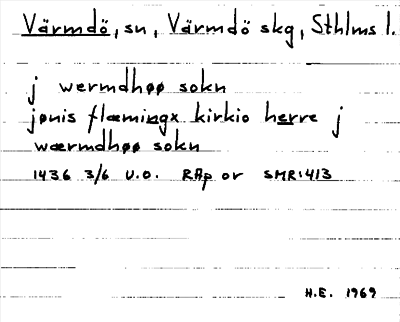 Värmdö, sn, Värmdö skg, Sthlms l.
j wermdhøø sokn
jønis flæmingx kirkio herre j
wærmdhøø sokn
1436 3/6 U.O. RAp or SMR:413
H.E. 1969